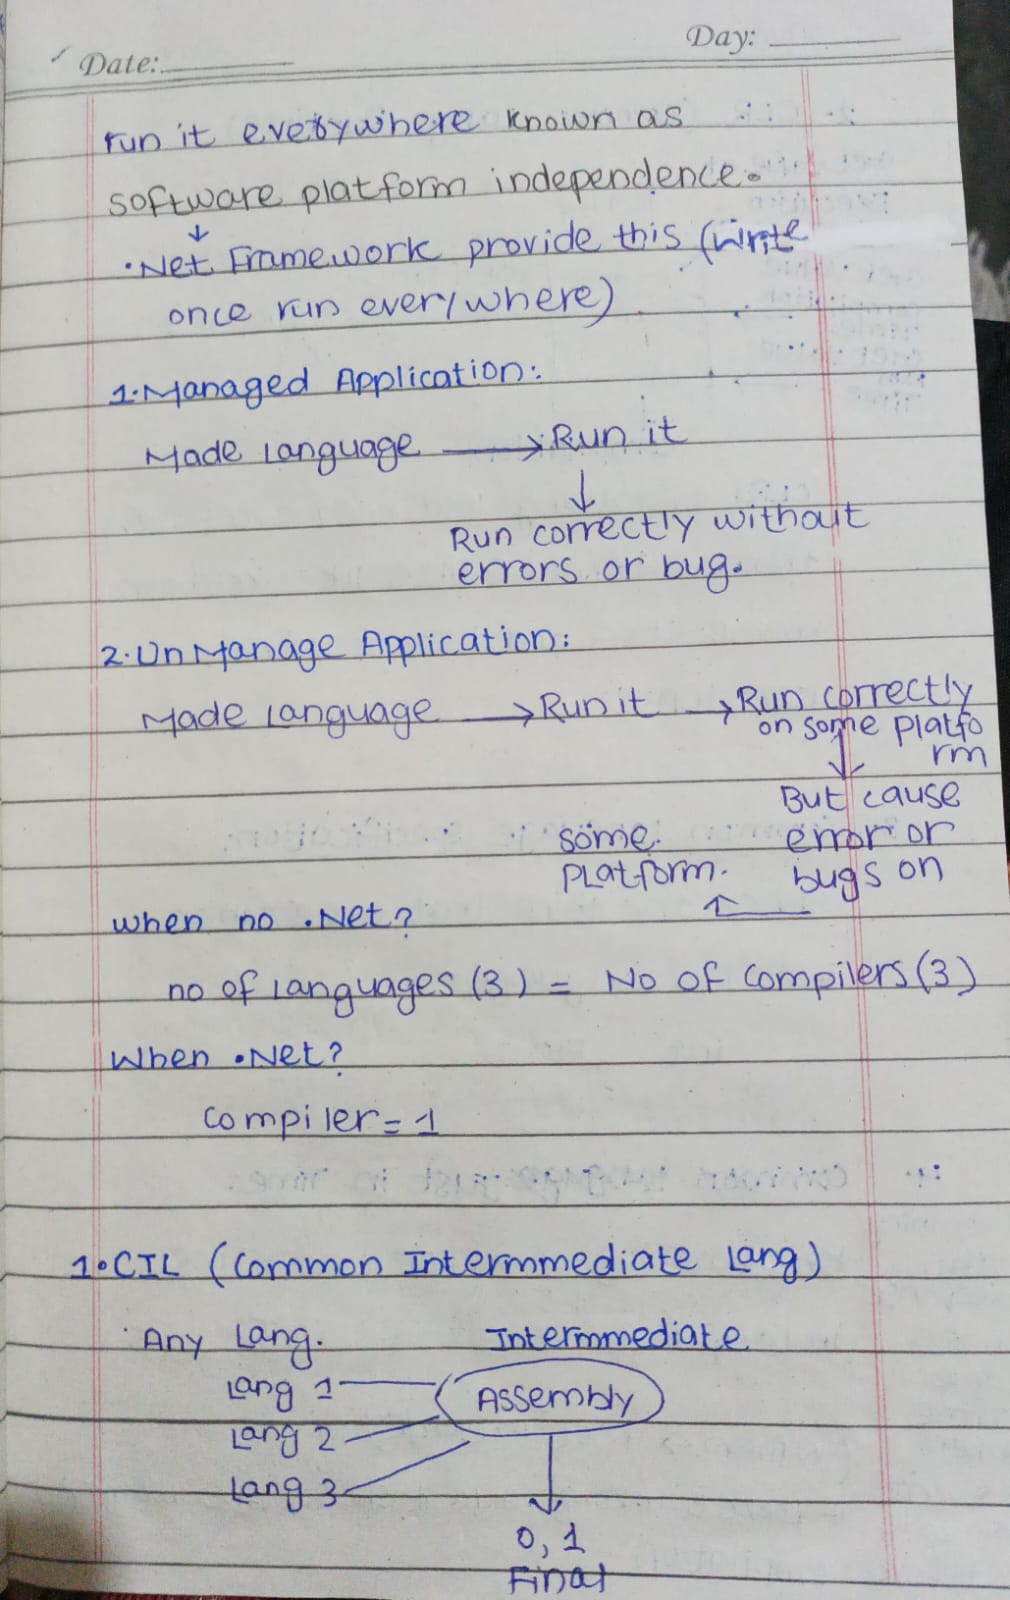 Date:
Day:
run it everywhere known as
software platform independence.
↓
.Net Framework provide this (write
once run everywhere)
1.Managed Application:
Made Language → Run it
↓
Run correctly without
errors or bug.
2.UnManage Application:
Made Language → Run it → Run correctly
on some platfo
rm
↓
But cause
error or
bugs on
←
some
Platform.
when no .Net?
no of languages (3) = No of compilers (3)
When .Net?
compiler = 1
1.CIL (Common Intermmediate Lang)
Any Lang.
Intermmediate
Lang 1
Assembly
Lang 2
Lang 3
↓
0, 1
Final